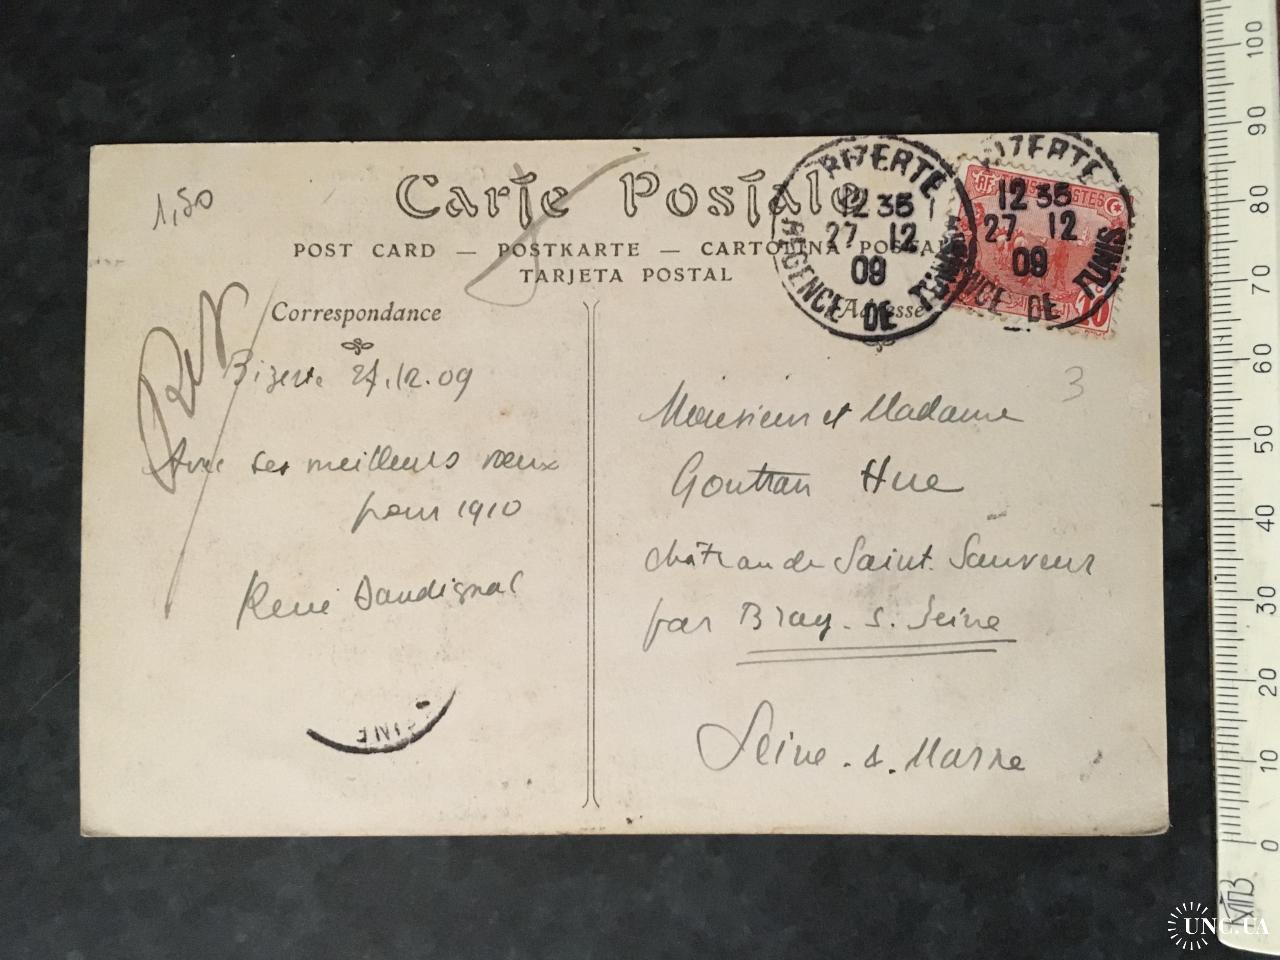 1,50
Carte Postale
POST CARD — POSTKARTE — CARTOLINA POSTALE
TARJETA POSTAL
BIZERTE
12 35
27 12
09
REGENCE DE TUNIS
BIZERTE
12 35
27 12
09
REGENCE DE TUNIS
RF
POSTES
10
Correspondance
Adresse
Bizerte 27.12.09
Avec ses meilleurs vœux
pour 1910
René Daudignac
3
Monsieur et Madame
Gontran Hue
château de Saint. Sauveur
par Bray. s. Seine
Seine. s. Marne
100
90
80
70
60
50
40
30
20
10
0
МПЗ
UNC.UA